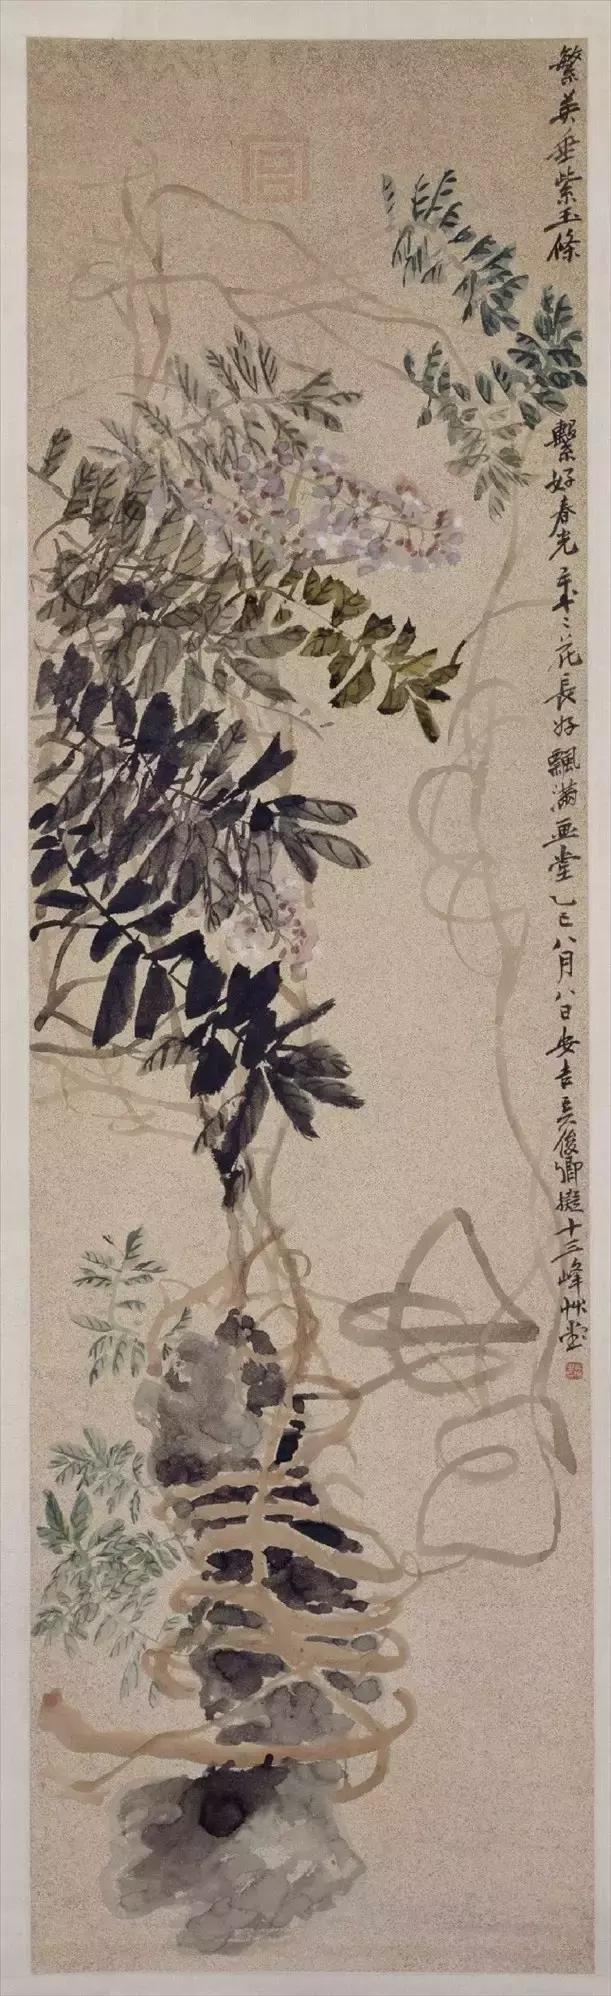 繁英垂紫玉條
繫好春光歲〻花長好飄滿画堂乙巳八月八日安吉吳俊卿擬十三峰艸堂